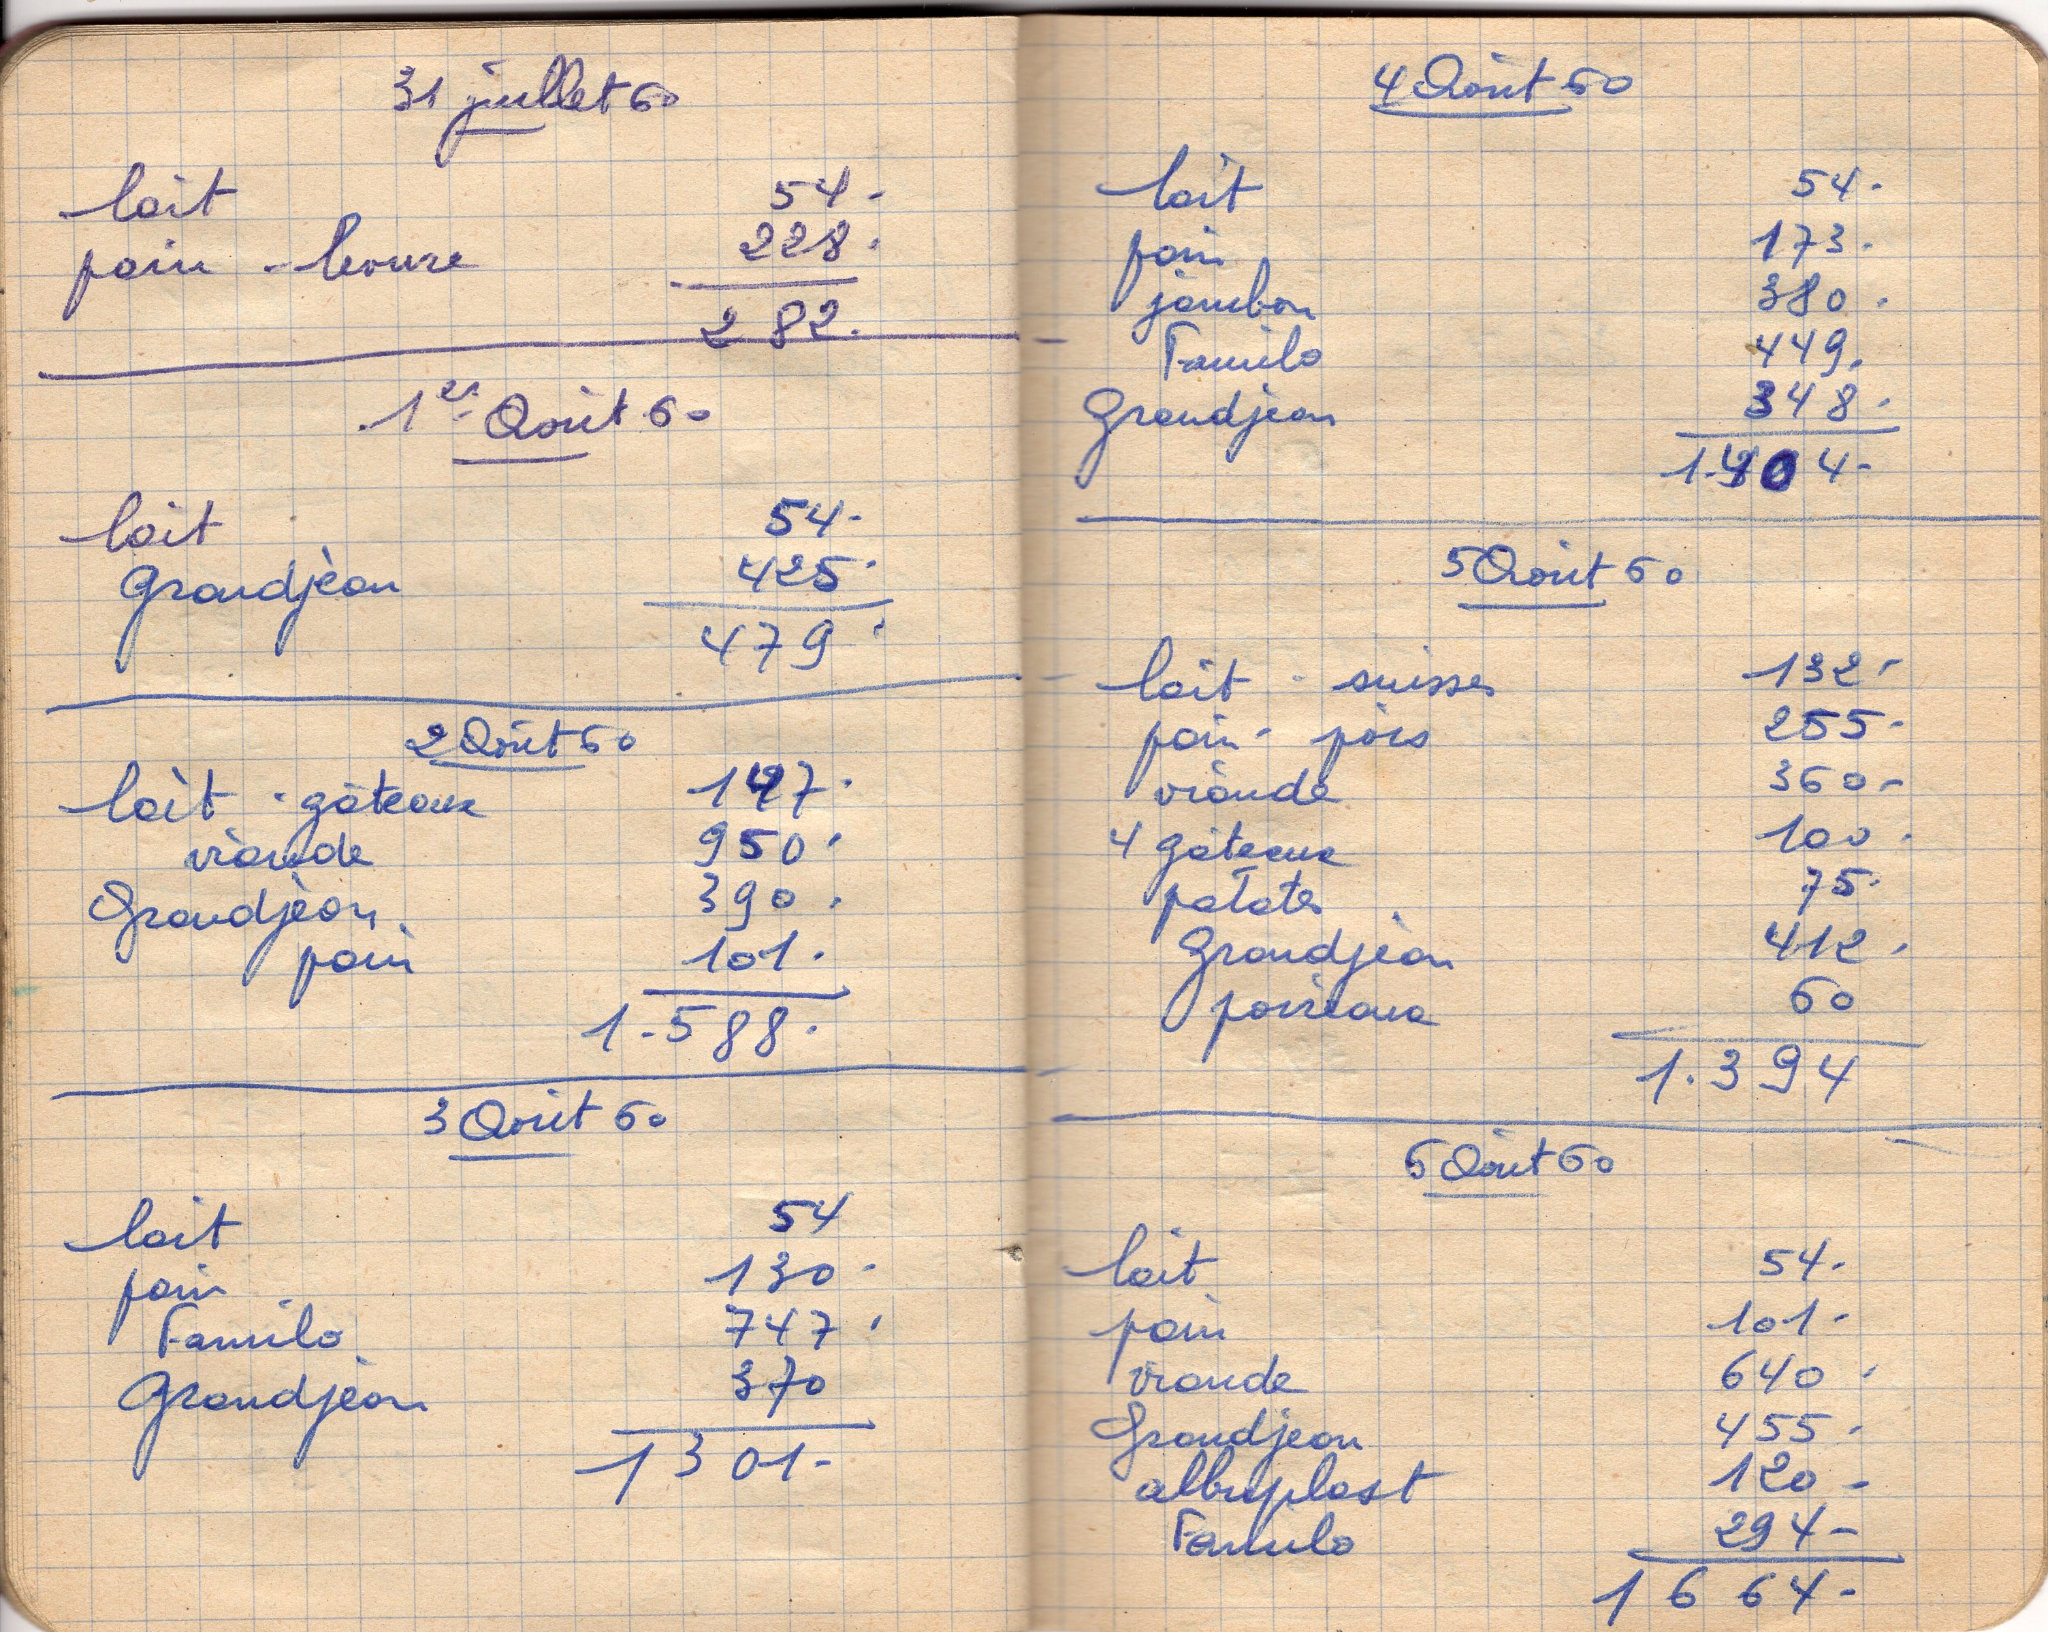 31 juillet 60
lait 54-
pain - beurre 228.
282.
1er Août 60
lait 54-
Grandjean 425.
479.
2 Août 60
lait - gâteaux 147.
viande 950.
Grandjean 390.
pain 101.
1.588.
3 Août 60
lait 54
pain 130-
Familo 747.
Grandjean 370
1301-
4 Août 60
lait 54.
pain 173.
jambon 380.
Familo 449.
Grandjean 348.
1.404-
5 Août 60
lait - suisses 132-
pain - pois 255-
viande 360-
4 gâteaux 100.
patates 75.
Grandjean 412.
poireaux 60
1.394
6 Août 60
lait 54.
pain 101-
viande 640.
Grandjean 455-
albuplast 120-
Familo 294-
1664-